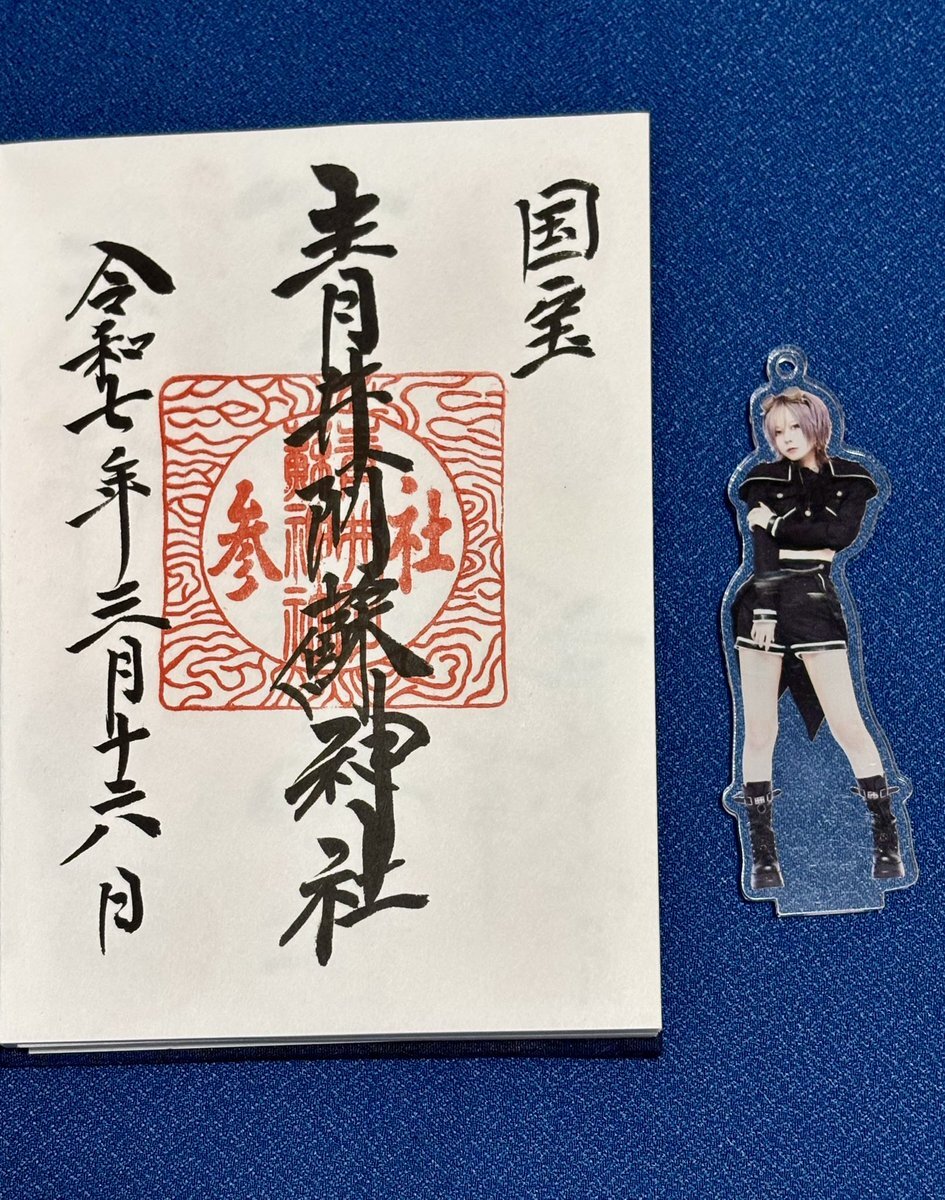 国宝
青井阿蘇神社
参社
青井阿
蘇神社
令和七年三月十六日